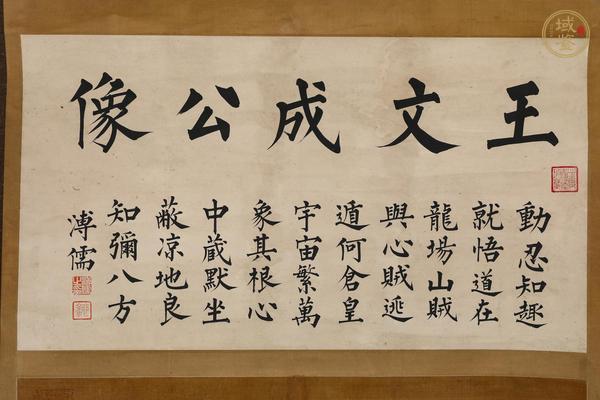 王文成公像
動忍知趣
就悟道在
龍場山賊
與心賊逃
遁何倉皇
宇宙繁萬
象其根心
中蔵默坐
蔽凉地良
知彌八方
溥儒
域鉴